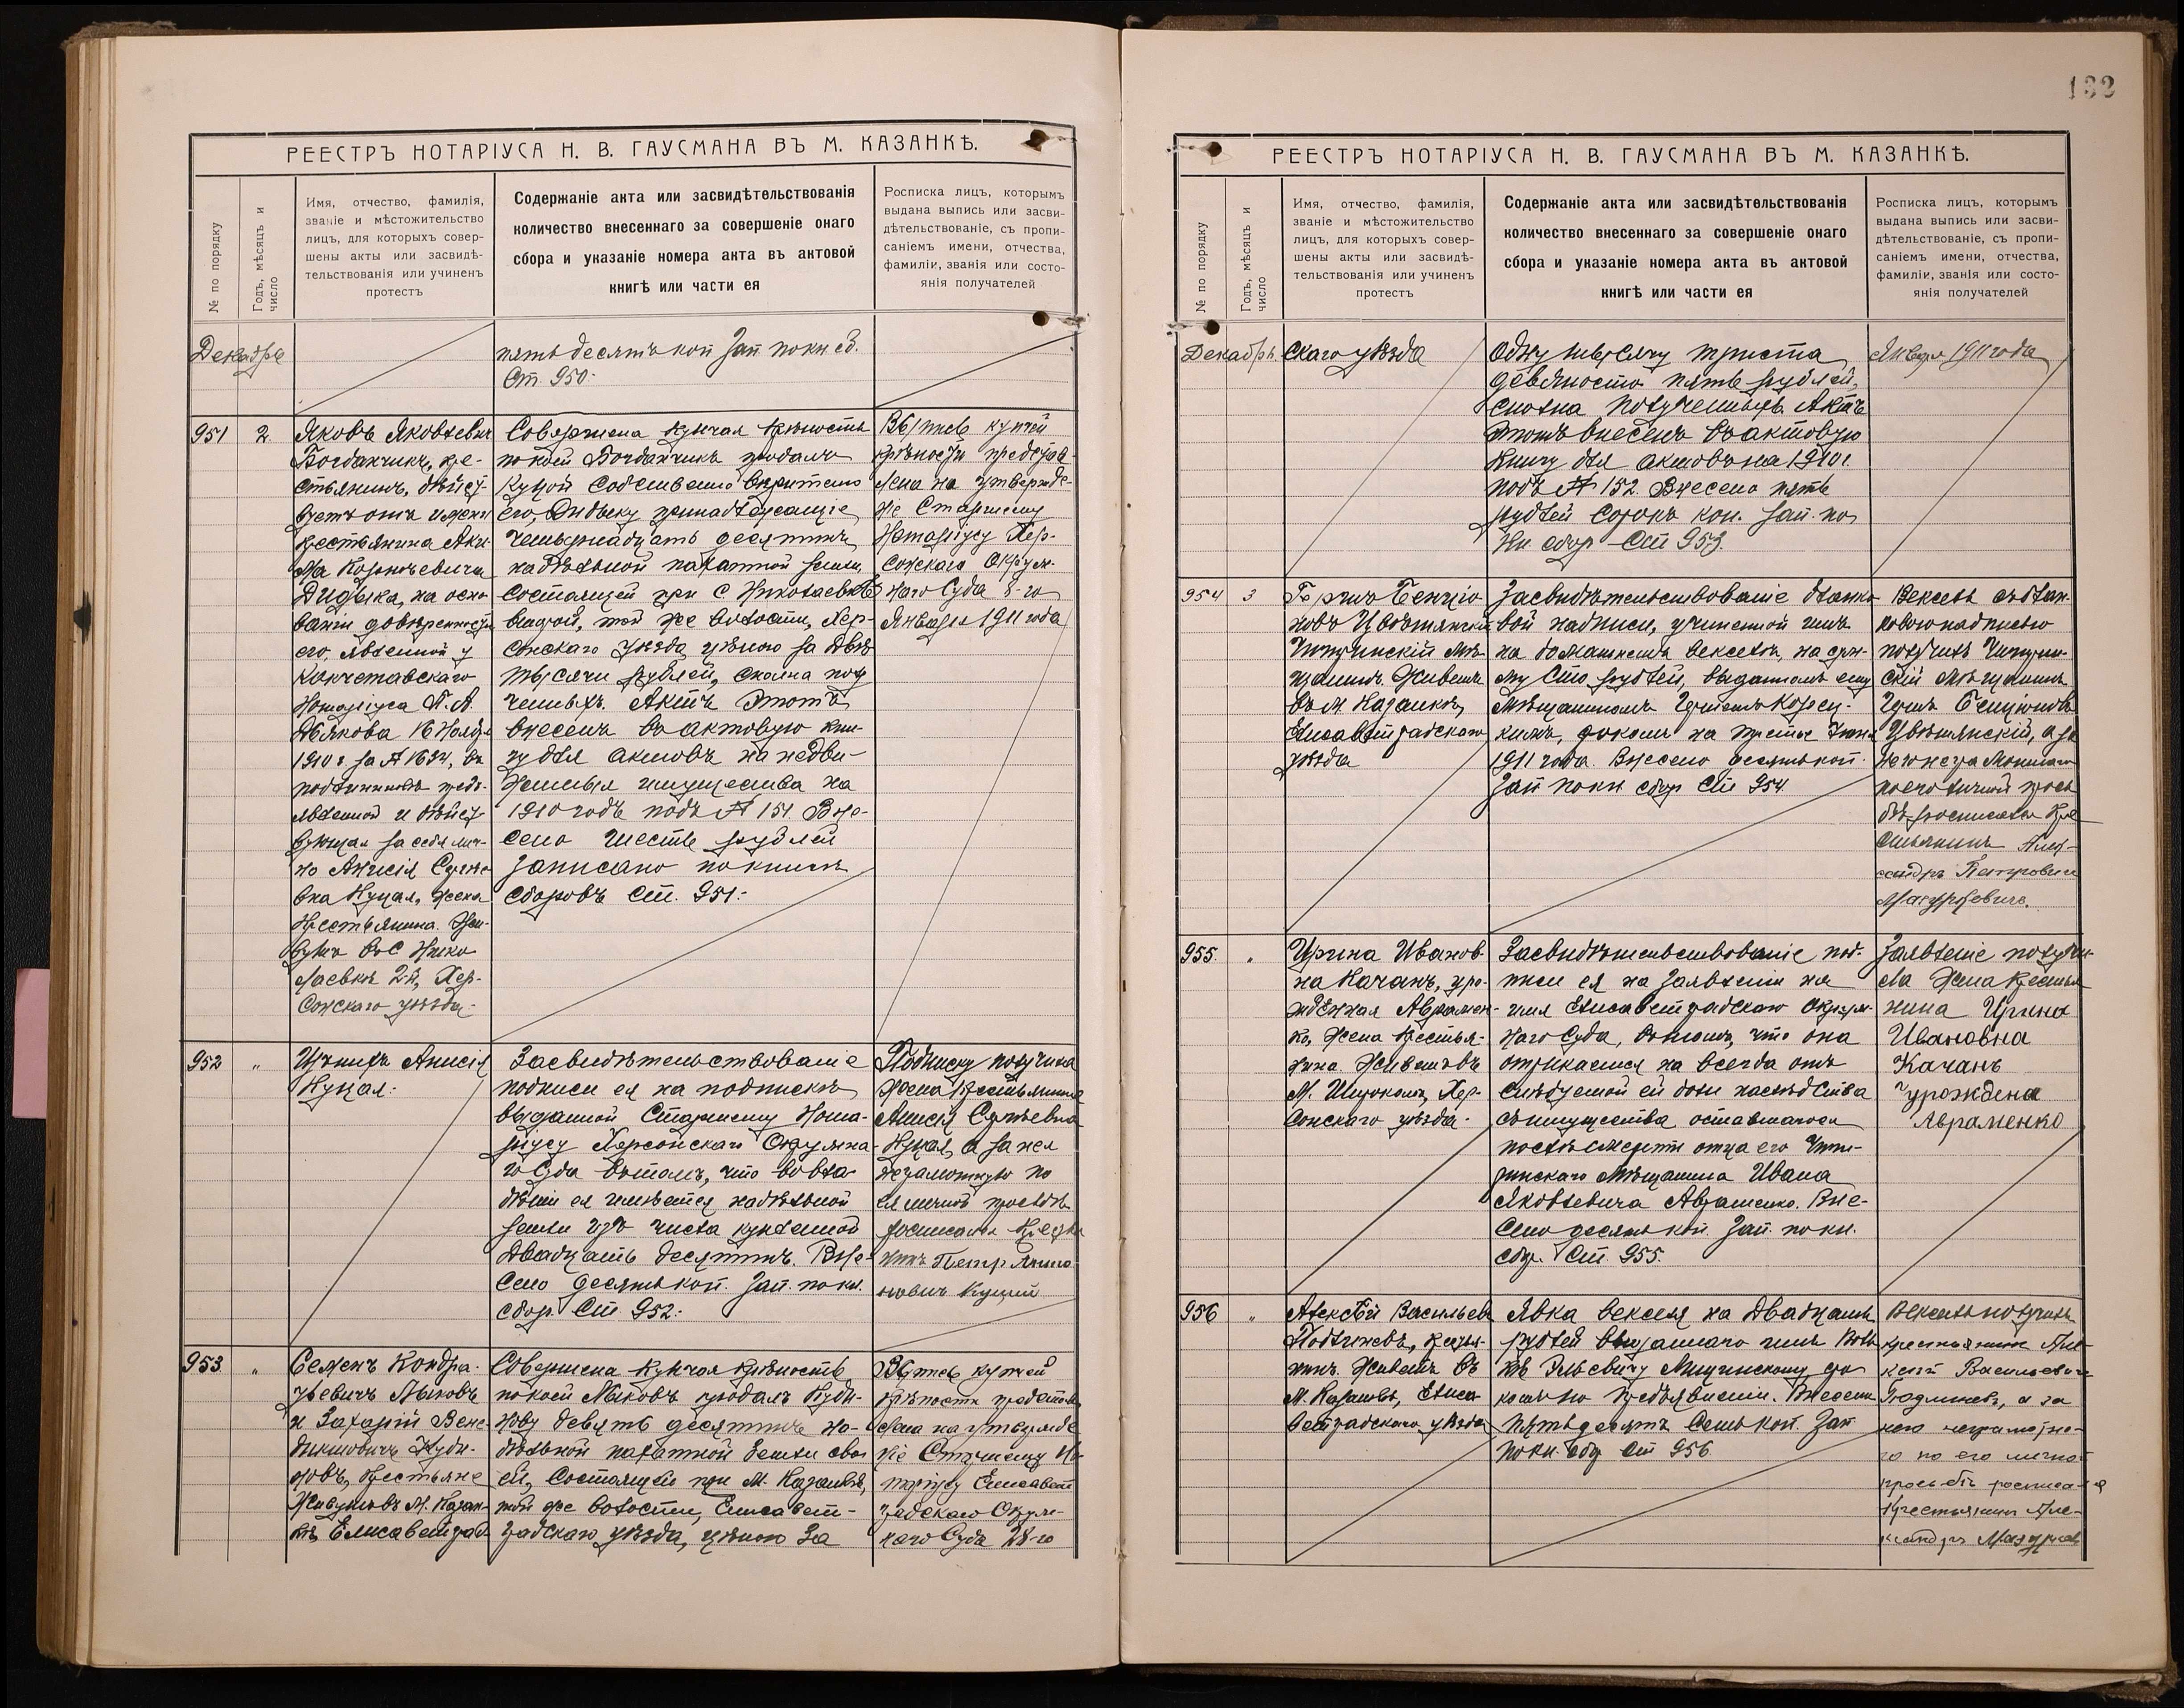 РЕЕСТРЪ НОТАРІУСА Н. В. ГАУСМАНА ВЪ М. КАЗАНКѢ.
№ по порядку
Годъ, мѣсяцъ и
число
Имя, отчество, фамилія,
званіе и мѣстожительство
лицъ, для которыхъ совер-
шены акты или засвидѣ-
тельствованія или учиненъ
протестъ
Содержаніе акта или засвидѣтельствованія
количество внесеннаго за совершеніе онаго
сбора и указаніе номера акта въ актовой
книгѣ или части ея
Росписка лицъ, которымъ
выдана выпись или засви-
дѣтельствованіе, съ пропи-
саніемъ имени, отчества,
фамиліи, званія или состо-
янія получателей
Декабрь
пятьдесятъ коп Зап по кн сб.
Ст. 950.
951
2
Яковъ Яковлевичъ
Богданчикъ, кре-
стьянинъ, дѣйст-
вуетъ отъ имени
крестьянина Аки-
ма
Дидыка, на осно-
ваніи довѣренности
его, явленной у
Кокчетавскаго
Нотаріуса П. А.
Дьякова 16 Ноября
1910 г за № 1634, въ
подлинникѣ предъ-
явленной и дѣйст-
вующая за себя лич-
но Анисія Сергѣе-
вна Куцая, жена
крестьянина. Жи-
вутъ въ С Нико-
лаевкѣ 2-й, Хер-
сонскаго уѣзда.
Совершена купчая крѣпость
по коей Богданчикъ продалъ
Куцой собственно вѣрителю
его, Дидыку принадлежащіе
четырнадцать десятинъ
надѣльной пахатной земли
состоящей при С Николаевкѣ
второй, той же волости, Хер-
сонскаго уѣзда, цѣною за двѣ
тысячи рублей, сполна полу
ченныхъ. Актъ этотъ
внесенъ въ актовую кни-
гу для актовъ на недви-
жимыя имущества на
1910 годъ подъ № 151. Вне-
сено шесть рублей
записано по книгѣ
сборовъ Ст. 951.
Выпись купчей
крѣпости представ-
лена на утвержде-
ніе Старшему
Нотаріусу Хер-
сонскаго Окруж-
наго Суда 8-го
Января 1911 года
952
"
Анисія
Куцая.
Засвидѣтельствованіе
подписи ея на подпискѣ
выданной Старшему Нота-
ріусу Херсонскаго Окружна-
го Суда въ томъ, что во вла-
дѣніи ея имѣется надѣльной
земли изъ числа купленной
двадцать десятинъ. Вне-
сено десять коп. Зап. по кн.
сбор. Ст 952.
Подписку получила
жена крестьянина
Анисія Сергѣевна
Куцая, а за нея
неграмотную по
ея личной просьбѣ
росписался крестья
нинъ Петр
Куцый
953
"
Семенъ Кондра-
тьевичъ Лыковъ
и Захарій Вене-
диктовичъ Куди-
новъ, крестьяне
живутъ въ М. Казан-
кѣ, Елисаветград
Совершена купчая крѣпость
по коей Лыковъ продалъ Куди-
нову девять десятинъ на-
дѣльной пахатной земли сво
ей, состоящей при М. Казанкѣ,
той же волости, Елисавет-
градскаго уѣзда, цѣною за
Выпись купчей
крѣпости представ
лена на утвержде
ніе Старшему Но
таріусу Елисавет
градскаго Окруж-
наго Суда 28-го
132
РЕЕСТРЪ НОТАРІУСА Н. В. ГАУСМАНА ВЪ М. КАЗАНКѢ.
№ по порядку
Годъ, мѣсяцъ и
число
Имя, отчество, фамилія,
званіе и мѣстожительство
лицъ, для которыхъ совер-
шены акты или засвидѣ-
тельствованія или учиненъ
протестъ
Содержаніе акта или засвидѣтельствованія
количество внесеннаго за совершеніе онаго
сбора и указаніе номера акта въ актовой
книгѣ или части ея
Росписка лицъ, которымъ
выдана выпись или засви-
дѣтельствованіе, съ пропи-
саніемъ имени, отчества,
фамиліи, званія или состо-
янія получателей
Декабрь
скаго уѣзда
одну тысячу триста
девяносто пять рублей,
сполна полученныхъ. Актъ
этотъ внесенъ въ актовую
книгу для актовъ на 1910 г.
подъ № 152. Внесено пять
рублей сорокъ коп. Зап. по
Кн. сбор Ст 953.
Января 1911 года
954
3
Бенціо
новъ Цвѣтянскій
Чигиринскій мѣ-
щанинъ. Живетъ
въ М. Казанкѣ,
Елисаветградскаго
уѣзда
Засвидѣтельствованіе бланко
вой надписи, учиненной имъ
на домашнемъ векселѣ, на сум-
му сто рублей, выданномъ ему
мѣщаниномъ
кимъ, срокомъ на третье Іюня
1911 года. Внесено десять коп.
Зап по кн сбор Ст 954
Вексель съ блан-
ковою надписью
получилъ Чигирин-
скій мѣщанинъ
Бенціоновъ
Цвѣтянскій, а за
него неграмотнаго
по его личной прось
бѣ росписался Кре
стьянинъ Алек-
сандръ Петровичъ
Мазуркевичъ.
955.
"
Ирина Иванов-
на Качанъ, уро-
жденная Авраменко-
ко, жена крестья-
нина. Живетъ въ
М. Широкомъ, Хер-
сонскаго уѣзда.
Засвидѣтельствованіе под-
писи ея на заявленіи на
имя Елисаветградскаго Окруж-
наго Суда, въ томъ, что она
отрекается на всегда отъ
слѣдуемой ей доли наслѣдства
съ имущества оставшагося
послѣ смерти отца его Чиги-
ринскаго мѣщанина Ивана
Яковлевича Авраменко. Вне-
сено десять коп. Зап. по кн.
сбор. Ст. 955.
Заявленіе получи-
ла жена крестья
нина Ирина
Ивановна
Качанъ
урождена
Авраменко
956
"
Алексѣй Васильевичъ
крестья-
нинъ. Живетъ въ
М. Казанкѣ, Елиса-
ветградскаго уѣзда
Явка векселя на двадцать
рублей выданнаго имъ
сро
комъ по предъявленіи. Внесено
пятьдесятъ семь коп. Зап
по кн. сбор Ст 956.
Вексель получилъ
крестьянинъ Але-
ксѣй Васильевичъ
а за
него неграмотна-
го по его личной
просьбѣ росписался
крестьянинъ Але-
ксандръ Мазуркев